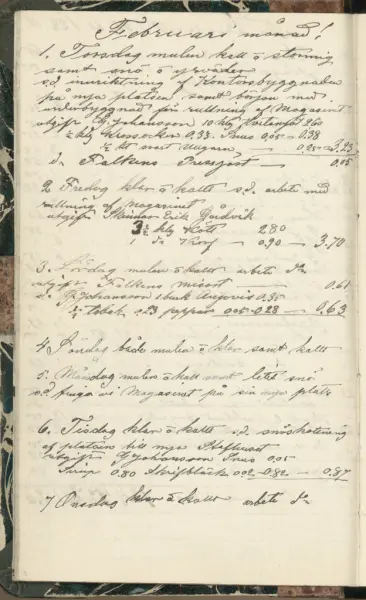 Februari månad!
1. Torsdag mulen kallt o stormig
samt snö o yrväder
s.d. inuritetning af Kontorsbyggnaden
på nya platsen, samt början med
underbyggnad för rullning af Magasinet
utgift Ey. Johansson 10 kg 2.60
½ kg Kronsocker 0.33. Snus 0.05 - 0.38
½ kt svart 0.25 - 3.23
1 da Falkens Pressjäst — 0.05
2 Fredag klar o kallt s.d. arbete med
rullning af magasinet
utgift Skinnar Erik Gordvik
3½ kg Kött 2.80
1 da Korf - 0.90 - 3.70
3. Lördag mulen o kallt arbete da
utgift Falkens 0.61
d. Ey Johansson 1 burk Anjovis 0.35
½ tobak 0.23 peppar 0.05 - 0.28 - 0.63
4 Söndag både mulen o klar samt kallt
5. Måndag mulen o kallt samt litet snö
s.d. vi Magasinet på sin nya plats
6. Tisdag klar o kallt s.d. snöskottning
af platsen till nya Stafhuset
utgift Ey Johansson Snus 0.05
Sirap 0.80 Skrifbläck 0.02 - 0.82 - 0.87
7 Onsdag klar o kallt arbete da